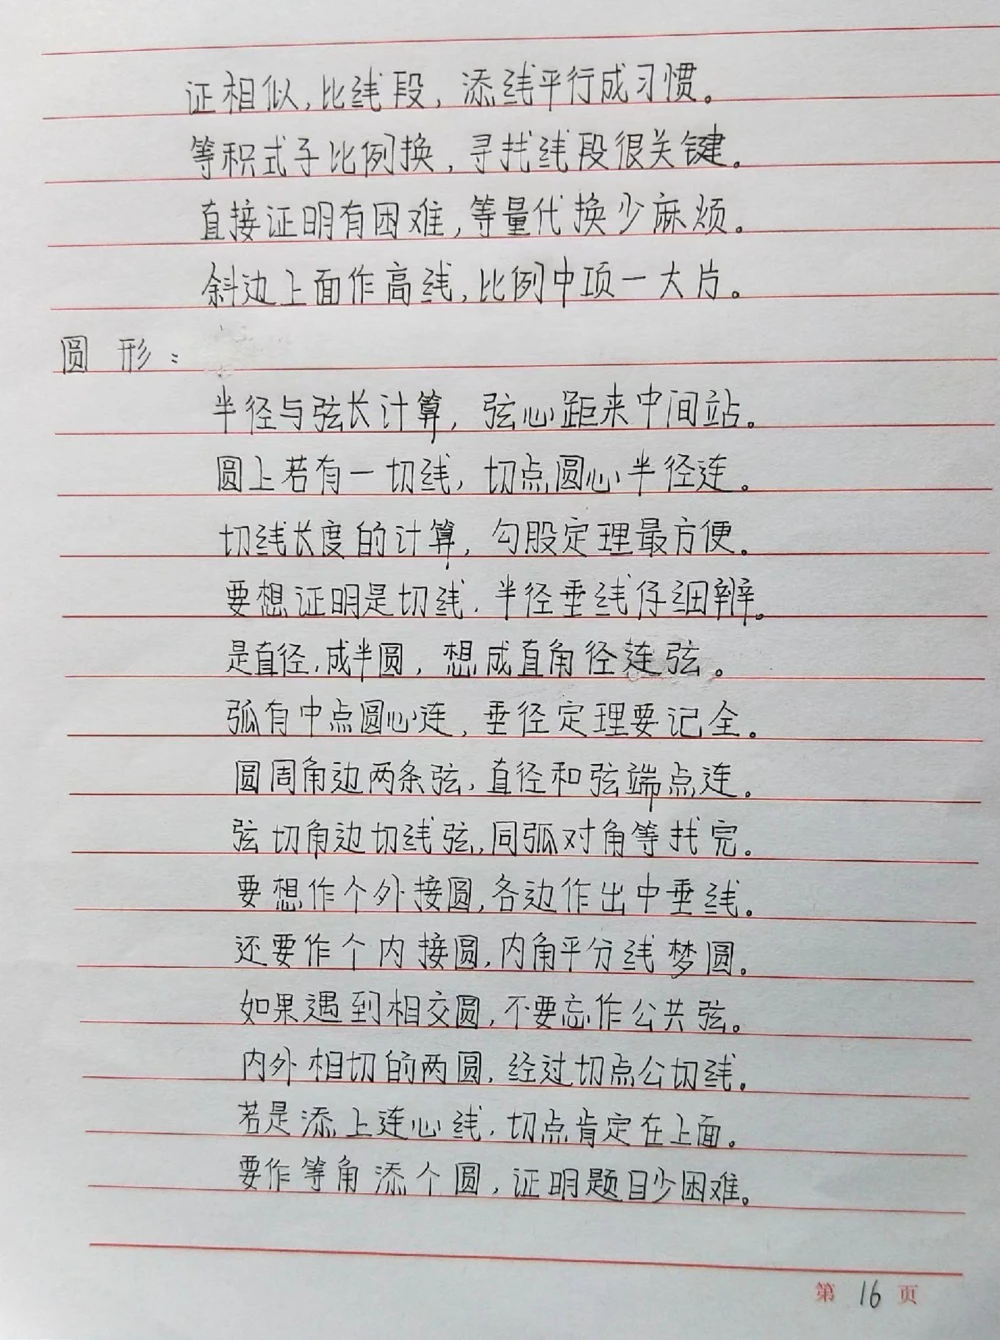 证相似,比线段,添线平行成习惯。
等积式子比例换,寻找线段很关键。
直接证明有困难,等量代换少麻烦。
斜边上面作高线,比例中项一大片。
圆形:
半径与弦长计算,弦心距来中间站。
圆上若有一切线,切点圆心半径连。
切线长度的计算,勾股定理最方便。
要想证明是切线,半径垂线仔细辨。
是直径,成半圆,想成直角径连弦。
弧有中点圆心连,垂径定理要记全。
圆周角边两条弦,直径和弦端点连。
弦切角边切线弦,同弧对角等找完。
要想作个外接圆,各边作出中垂线。
还要作个内接圆,内角平分线梦圆。
如果遇到相交圆,不要忘作公共弦。
内外相切的两圆,经过切点公切线。
若是添上连心线,切点肯定在上面。
要作等角添个圆,证明题目少困难。
第16页